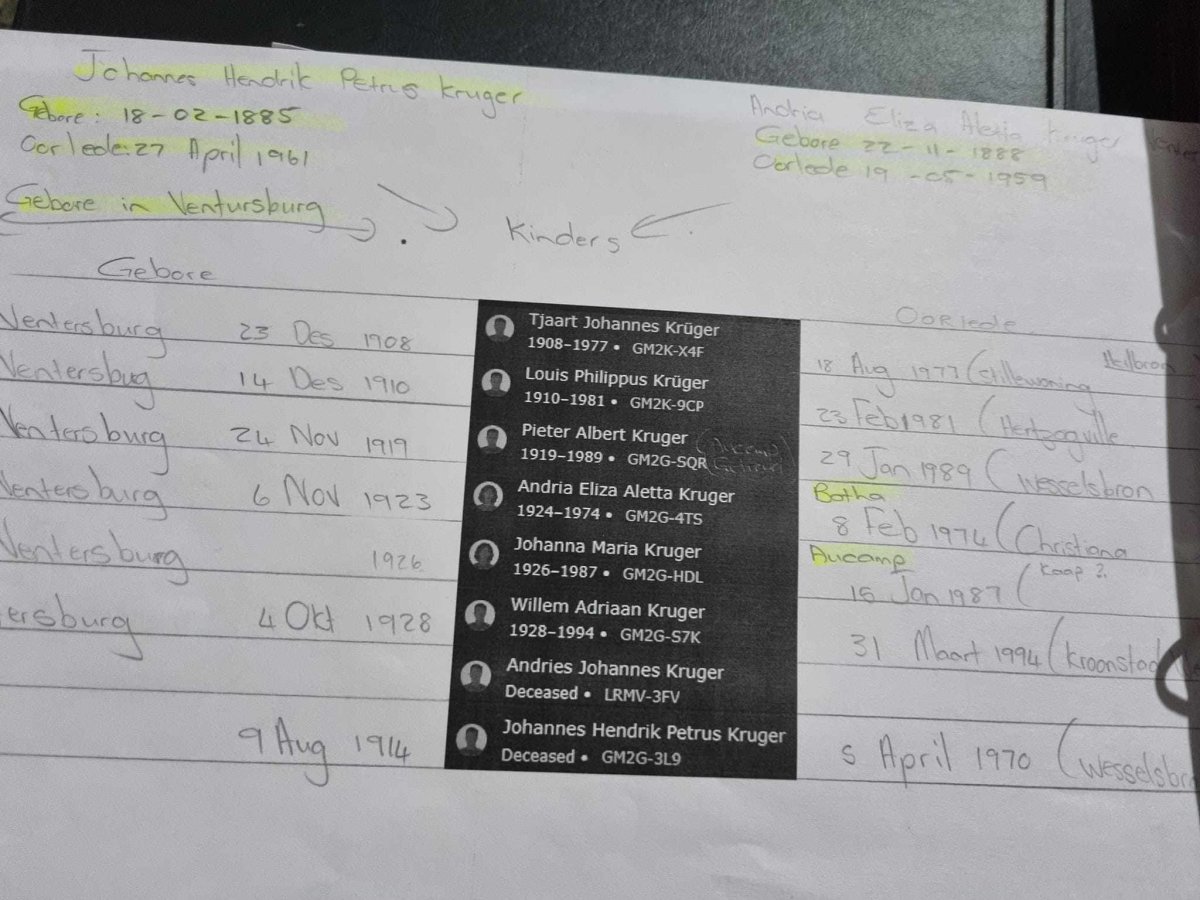 Johannes Hendrik Petrus Kruger
Gebore: 18-02-1885
Oorlede: 27 April 1961
Gebore in Ventursburg
Andria Eliza Aletta Kruger
Gebore 22-11-1888
Oorlede 19-05-1959
Kinders
Gebore
Oorlede
Ventersburg 23 Des 1908
Tjaart Johannes Krüger
1908–1977 • GM2K-X4F
18 Aug 1977 (Stillewoning Heilbron
Ventersbug 14 Des 1910
Louis Philippus Krüger
1910–1981 • GM2K-9CP
23 Feb 1981 (Hertzogville
Ventersburg 24 Nov 1919
Pieter Albert Kruger
1919–1989 • GM2G-SQR
29 Jan 1989 (Wesselsbron
Ventersburg 6 Nov 1923
Andria Eliza Aletta Kruger
1924–1974 • GM2G-4TS
Botha
8 Feb 1974 (Christiana
Ventersburg 1926
Johanna Maria Kruger
1926–1987 • GM2G-HDL
Aucamp
15 Jan 1987 (Kaap?
ersburg 4 Okt 1928
Willem Adriaan Kruger
1928–1994 • GM2G-S7K
31 Maart 1994 (Kroonstad
Andries Johannes Kruger
Deceased • LRMV-3FV
9 Aug 1914
Johannes Hendrik Petrus Kruger
Deceased • GM2G-3L9
5 April 1970 (Wesselsbr